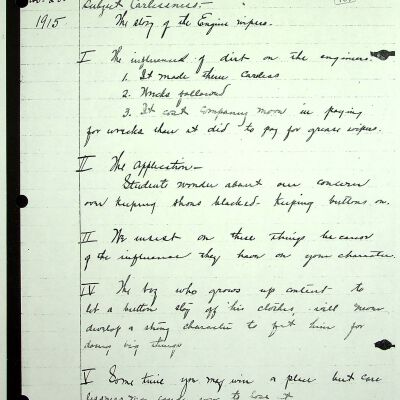 1915
Subject Carlessness.—
The story of the Engine wipers.
I The influenced of dirt on the engineers.
1. It made them Careless
2. Wrecks followed
3. It cost Company more in paying
for wrecks than it did to pay for grease wipers.
II The Application—
Students wonder about our concern
over keeping shoes blacked. Keeping buttons on.
II We insist on these things because
of the influence they have on your character.
IV The boy who grows up content to
let a button stay off his clothes, will never
develop a strong character to fit him for
doing big things
V Some time you may win a place but care
lessness may cause you to lose it